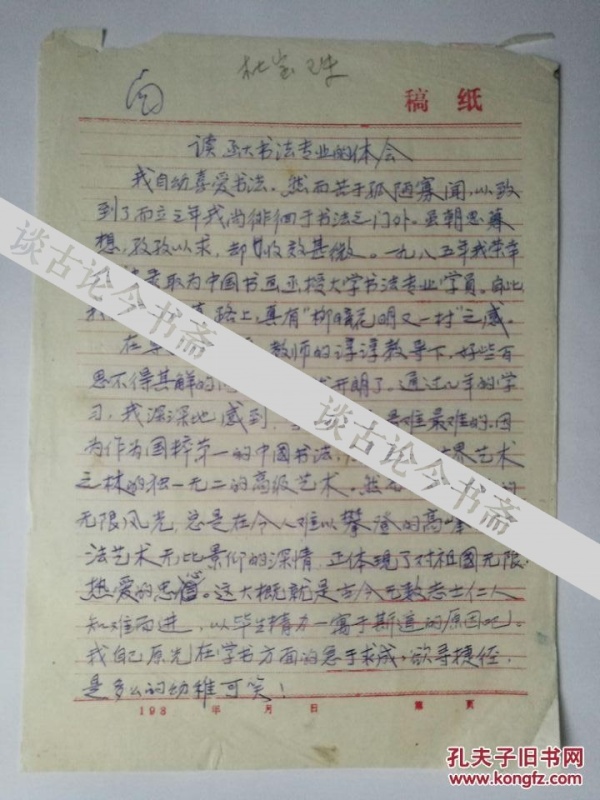 杜宝珠
稿 纸
读函大书法专业的体会
我自幼喜爱书法。然而苦于孤陋寡闻，以致
到了而立之年我尚徘徊于书法之门外。虽朝思暮
想，孜孜以求，却收效甚微。一九八五年我荣幸
录取为中国书画函授大学书法专业学员。由此
路上，真有“柳暗花明又一村”之感。
在 教师的谆谆教导下，好些百
思不得其解的 开朗了。通过几年的学
习，我深深地感到， 最难最难的，因
为作为国粹第一的中国书法， 界艺术
之林的独一无二的高级艺术。 的
无限风光，总是在令人难以攀登的高峰
法艺术无比景仰的深情，正体现了对祖国无限
热爱的忠心。这大概就是古今无数志士仁人
知难而进，以毕生精力一寓于斯道的原因吧。
我自己原先在学书方面的急于求成，欲寻捷径，
是多么的幼稚可笑！
198 年 月 日 第 页
谈古论今书斋
谈古论今书斋
孔夫子旧书网
www.kongfz.com